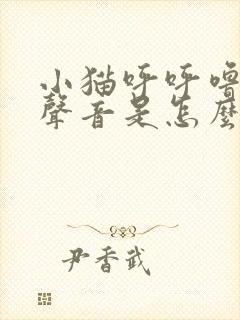 小猫呼呼噜
聲音是怎麼
尹香武